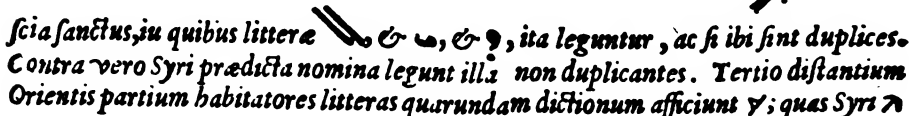 ſcia ſanctus,iu quibus litteræ & , & , ita leguntur , ac ſi ibi ſint duplices.
Contra vero Syri prædicta nomina legunt illa non duplicantes. Tertio diſtantium
Orientis partium habitatores litteras quarundam dictionum afficiunt ; quas Syri